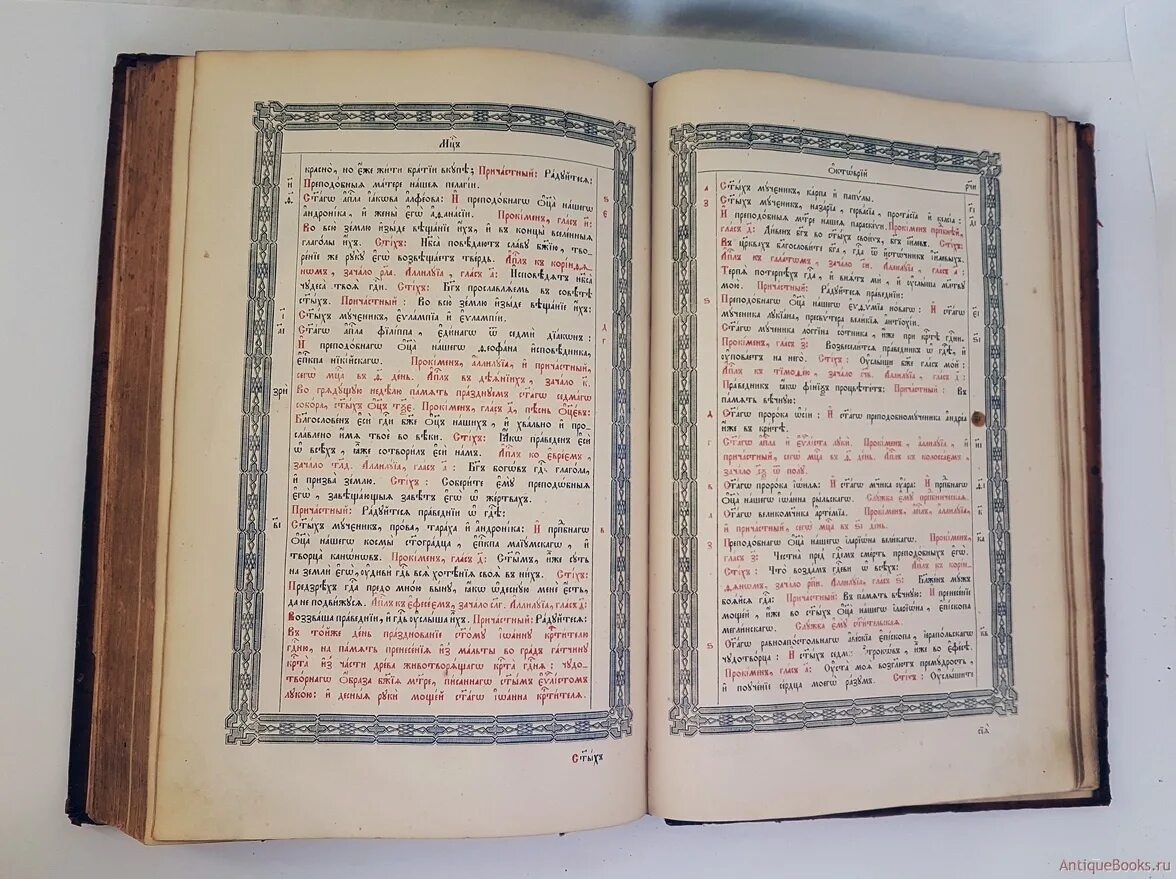 Мцⷭ҇ъ
красно, но є҆́же жити бра́тїи вкꙋ́пѣ; Прича́стный: Ра́дꙋйтесѧ:
и҃ Преподо́бныѧ ма́тере на́шеѧ пелагі́и.
ѳ҃ Ст҃а́гѡ а҆пⷭ҇ла і҆а́кѡва а҆лфе́ова: И҆ преподо́бнагѡ ѻ҆ц҃а̀ на́шегѡ ѕ
а҆ндроні́ка, и҆ жены̀ є҆гѡ̀ а҆ѳана́сїи. Прокі́менъ, гла́съ и҃: є
Во всю̀ зе́млю и҆зы́де вѣща́нїе и҆́хъ, и҆ въ концы̀ вселе́нныѧ
глаго́лы и҆́хъ. Сті́хъ: Нб҃са̀ повѣ́даютъ сла́вꙋ бж҃їю, тво-
ре́нїе же рꙋкꙋ̀ є҆гѡ̀ возвѣща́етъ тве́рдь. А҆пⷭ҇лъ къ корі́нѳѧ-
нѡмъ, зача́ло рл҃а. А҆ллилꙋ́їа, гла́съ а҃: И҆сповѣ́дѧтъ нб҃са̀
чꙋдеса̀ твоѧ̑ гдⷭ҇и. Сті́хъ: Бг҃ъ прославлѧ́емь въ совѣ́тѣ
ст҃ы́хъ. Прича́стный: Во всю̀ зе́млю и҆зы́де вѣща́нїе и҆́хъ:
і҃ Ст҃ы́хъ мꙋ́ченикъ, є҆ѵла́мпїа и҆ є҆ѵлампі́и.
а҃і Ст҃а́гѡ а҆пⷭ҇ла фїлі́ппа, є҆ди́нагѡ ѿ седми́ дїа́кѡнъ: д
И҆ преподо́бнагѡ ѻ҆ц҃а̀ на́шегѡ ѳеофа́на и҆сповѣ́дника, г
є҆пⷭ҇кпа нїке́йскагѡ. Прокі́менъ, а҆ллилꙋ́їа, и҆ прича́стный,
сегѡ̀ мцⷭ҇а въ ѳ҃ де́нь. А҆пⷭ҇лъ въ дѣѧ́нїихъ, зача́ло к҃.
зрѝ Во грѧдꙋ́щꙋю недѣ́лю па́мѧть пра́зднꙋемъ ст҃а́гѡ седма́гѡ
собо́ра, ст҃ы́хъ ѻ҆ц҃ъ тѯ҃е. Прокі́менъ, гла́съ д҃, пѣ́снь ѻ҆ц҃є́въ:
Блгⷭ҇ове́нъ є҆сѝ гдⷭ҇и бж҃е ѻ҆ц҃ъ на́шихъ, и҆ хва́льно и҆ про-
сла́влено и҆́мѧ твоѐ во вѣ́ки. Сті́хъ: Ꙗ҆́кѡ пра́веденъ є҆сѝ
ѡ҆ всѣ́хъ, ꙗ҆̀же сотвори́лъ є҆сѝ на́мъ. А҆пⷭ҇лъ ко є҆вре́ємъ,
зача́ло тл҃д. А҆ллилꙋ́їа, гла́съ а҃: Бг҃ъ богѡ́въ гдⷭ҇ь глаго́ла,
и҆ призва̀ зе́млю. Сті́хъ: Собери́те є҆мꙋ̀ преподѡ́бныѧ
є҆гѡ̀, завѣща́ющыѧ завѣ́тъ є҆гѡ̀ ѡ҆ же́ртвахъ.
Прича́стный: Ра́дꙋйтесѧ пра́веднїи ѡ҆ гдⷭ҇ѣ:
в҃і Ст҃ы́хъ мꙋ́ченикъ, про́ва, тара́ха и҆ а҆ндроні́ка: И҆ прпⷣбнагѡ в
ѻ҆ц҃а̀ на́шегѡ космы̀ ст҃огра́дца, є҆пⷭ҇кпа маїꙋ́мскагѡ, и҆
творца̀ канѡ́нѡвъ. Прокі́менъ, гла́съ д҃: Ст҃ы̑мъ, и҆̀же сꙋ́ть
на землѝ є҆гѡ̀, ᲂу҆дивѝ гдⷭ҇ь всѧ̑ хотѣ̑нїѧ своѧ̑ въ ни́хъ. Сті́хъ:
Предзрѣ́хъ гдⷭ҇а предо мно́ю вы́нꙋ, ꙗ҆́кѡ ѡ҆деснꙋ́ю менє̀ є҆́сть,
да не подви́жꙋсѧ. А҆пⷭ҇лъ къ є҆фесе́ємъ, зача́ло сл҃г. А҆ллилꙋ́їа, гла́съ д҃:
Воззва́ша пра́веднїи, и҆ гдⷭ҇ь ᲂу҆слы́ша и҆̀хъ. Прича́стный: Ра́дꙋйтесѧ:
Въ то́йже де́нь пра́зднованїе ст҃о́мꙋ і҆ѡа́ннꙋ крⷭ҇ти́телю
гдⷭ҇ню, на па́мѧть пренесе́нїѧ и҆з̾ ма́льты во гра́дъ га́тчинꙋ
крⷭ҇та̀ и҆з̾ ча́сти дре́ва животворѧ́щагѡ крⷭ҇та̀ гдⷭ҇нѧ: чꙋдо-
тво́рнагѡ ѻ҆́браза бж҃їѧ мт҃ре, пи́саннагѡ ст҃ы́мъ є҆ѵⷢ҇лі́стомъ
лꙋко́ю: и҆ десны́ѧ рꙋкѝ моще́й ст҃а́гѡ і҆ѡа́нна крⷭ҇ти́телѧ.
Ст҃ы́хъ
Ѻ҆ктѡ́врїй
рч҃и
а Ст҃ы́хъ мꙋ́ченикъ, ка́рпа и҆ папꙋ́лы. г҃і
з Ст҃ы́хъ мꙋ́ченикъ, наза́рїа, герва́сїа, прота́сїа и҆ ке́лсїа: д҃і
И҆ преподо́бныѧ мт҃ре на́шеѧ параске́ѵи. Прокі́менъ прпⷣбнѣй,
гла́съ д҃: Ди́венъ бг҃ъ во ст҃ы́хъ свои́хъ, бг҃ъ і҆и҃левъ. Сті́хъ:
Въ цр҃квахъ благослови́те бг҃а, гдⷭ҇а ѿ и҆стѡ́чникъ і҆и҃левыхъ.
А҆пⷭ҇лъ къ гала́тѡмъ, зача́ло си҃. А҆ллилꙋ́їа, гла́съ а҃:
Терпѧ̀ потерпѣ́хъ гдⷭ҇а, и҆ внѧ́тъ мѝ, и҆ ᲂу҆слы́ша мл҃твꙋ
мою̀. Прича́стный: Ра́дꙋйтесѧ пра́веднїи:
ѕ Преподо́бнагѡ ѻ҆ц҃а̀ на́шегѡ є҆ѵѳѵ́мїа но́вагѡ: И҆ ст҃а́гѡ є҃і
мꙋ́ченика лꙋкїа́на, пресвѵ́тера вели́кїѧ а҆нтїохі́и.
Ст҃а́гѡ мꙋ́ченика логги́на со́тника, и҆́же при крⷭ҇тѣ̀ гдⷭ҇ни. ѕ҃і
Прокі́менъ, гла́съ з҃: Возвесели́тсѧ пра́ведникъ ѡ҆ гдⷭ҇ѣ, и҆
ᲂу҆пова́етъ на него̀. Сті́хъ: Оу҆слы́ши бж҃е гла́съ мо́й:
А҆пⷭ҇лъ къ тїмоѳе́ю, зача́ло сч҃в. А҆ллилꙋ́їа, гла́съ д҃:
Пра́ведникъ ꙗ҆́кѡ фі́нїѯъ процвѣте́тъ: Прича́стный: Въ
па́мѧть вѣ́чнꙋю:
д Ст҃а́гѡ проро́ка ѡ҆сі́и: И҆ ст҃а́гѡ преподобномꙋ́ченика а҆ндре́а
и҆́же въ кри́тѣ.
г Ст҃а́гѡ а҆пⷭ҇ла и҆ є҆ѵⷢ҇лі́ста лꙋкѝ. Прокі́менъ, а҆ллилꙋ́їа, и҆ и҃і
прича́стный, сегѡ̀ мцⷭ҇а въ ѳ҃ де́нь. А҆пⷭ҇лъ къ колосса́ємъ,
зача́ло ѿ полꙋ̀.
в Ст҃а́гѡ проро́ка і҆ѡи́лѧ: И҆ ст҃а́гѡ мч҃ника ᲂу҆а́ра: И҆ прпⷣбнагѡ ѳ҃і
ѻ҆ц҃а̀ на́шегѡ і҆ѡа́нна ры́льскагѡ. Слꙋ́жба є҆мꙋ̀ прпⷣбническаѧ.
а Ст҃а́гѡ великомч҃ника а҆рте́мїа. Прокі́менъ, а҆пⷭ҇лъ, а҆ллилꙋ́їа, к҃
и҆ прича́стный, сегѡ̀ мцⷭ҇а въ ѕ҃і де́нь.
з Преподо́бнагѡ ѻ҆ц҃а̀ на́шегѡ і҆ларїѡ́на вели́кагѡ. Прокі́менъ, к҃а
гла́съ з҃: Честна̀ пред̾ гдⷭ҇емъ сме́рть преподо́бныхъ є҆гѡ̀.
Сті́хъ: Что̀ возда́мъ гдⷭ҇еви ѡ҆ всѣ́хъ: А҆пⷭ҇лъ къ корі́н-
ѳѧнѡмъ, зача́ло рп҃и. А҆ллилꙋ́їа, гла́съ ѕ҃: Бл҃же́нъ мꙋ́жъ
боѧ́йсѧ гдⷭ҇а: Прича́стный: Въ па́мѧть вѣ́чнꙋю: И҆ пренесе́нїе
моще́й, и҆̀же во ст҃ы́хъ ѻ҆ц҃а̀ на́шегѡ і҆ларїѡ́на, є҆пі́скопа
мегли́нскагѡ. Слꙋ́жба є҆мꙋ̀ ст҃и́тельскаѧ.
ѕ Ст҃а́гѡ равноапо́стольнагѡ а҆ве́ркїа є҆пі́скопа, і҆ера́польскагѡ к҃в
чꙋдотво́рца: И҆ ст҃ы́хъ седмѝ ѻ҆трокѡ́въ, и҆̀же во є҆фе́сѣ:
Прокі́менъ, гла́съ а҃: Оу҆ста̀ моѧ̑ возглаго́лютъ премꙋ́дрость,
и҆ поꙋче́нїе се́рдца моегѡ̀ ра́зꙋмъ. Сті́хъ: Оу҆слы́шите
сїѧ̑
AntiqueBooks.ru